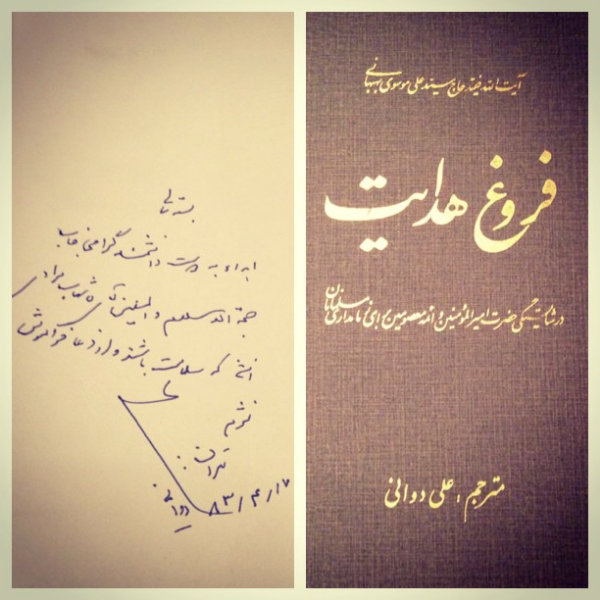 آیت الله فقید حاج سید علی موسوی بهبهانی
فروغ هدایت
در شایستگی حضرت امیرالمؤمنین و ائمه معصومین برای زمامداری مسلمانان
مترجم: علی دوانی
بسمه تعالی
اهداء به دوست دانشمند گرامی جناب
حجة الاسلام و المسلمین شهاب مرادی
که سلامت باشند و از دعا فراموش
نشوم
تهران:
۸۳/۴/۱۷
دوانی